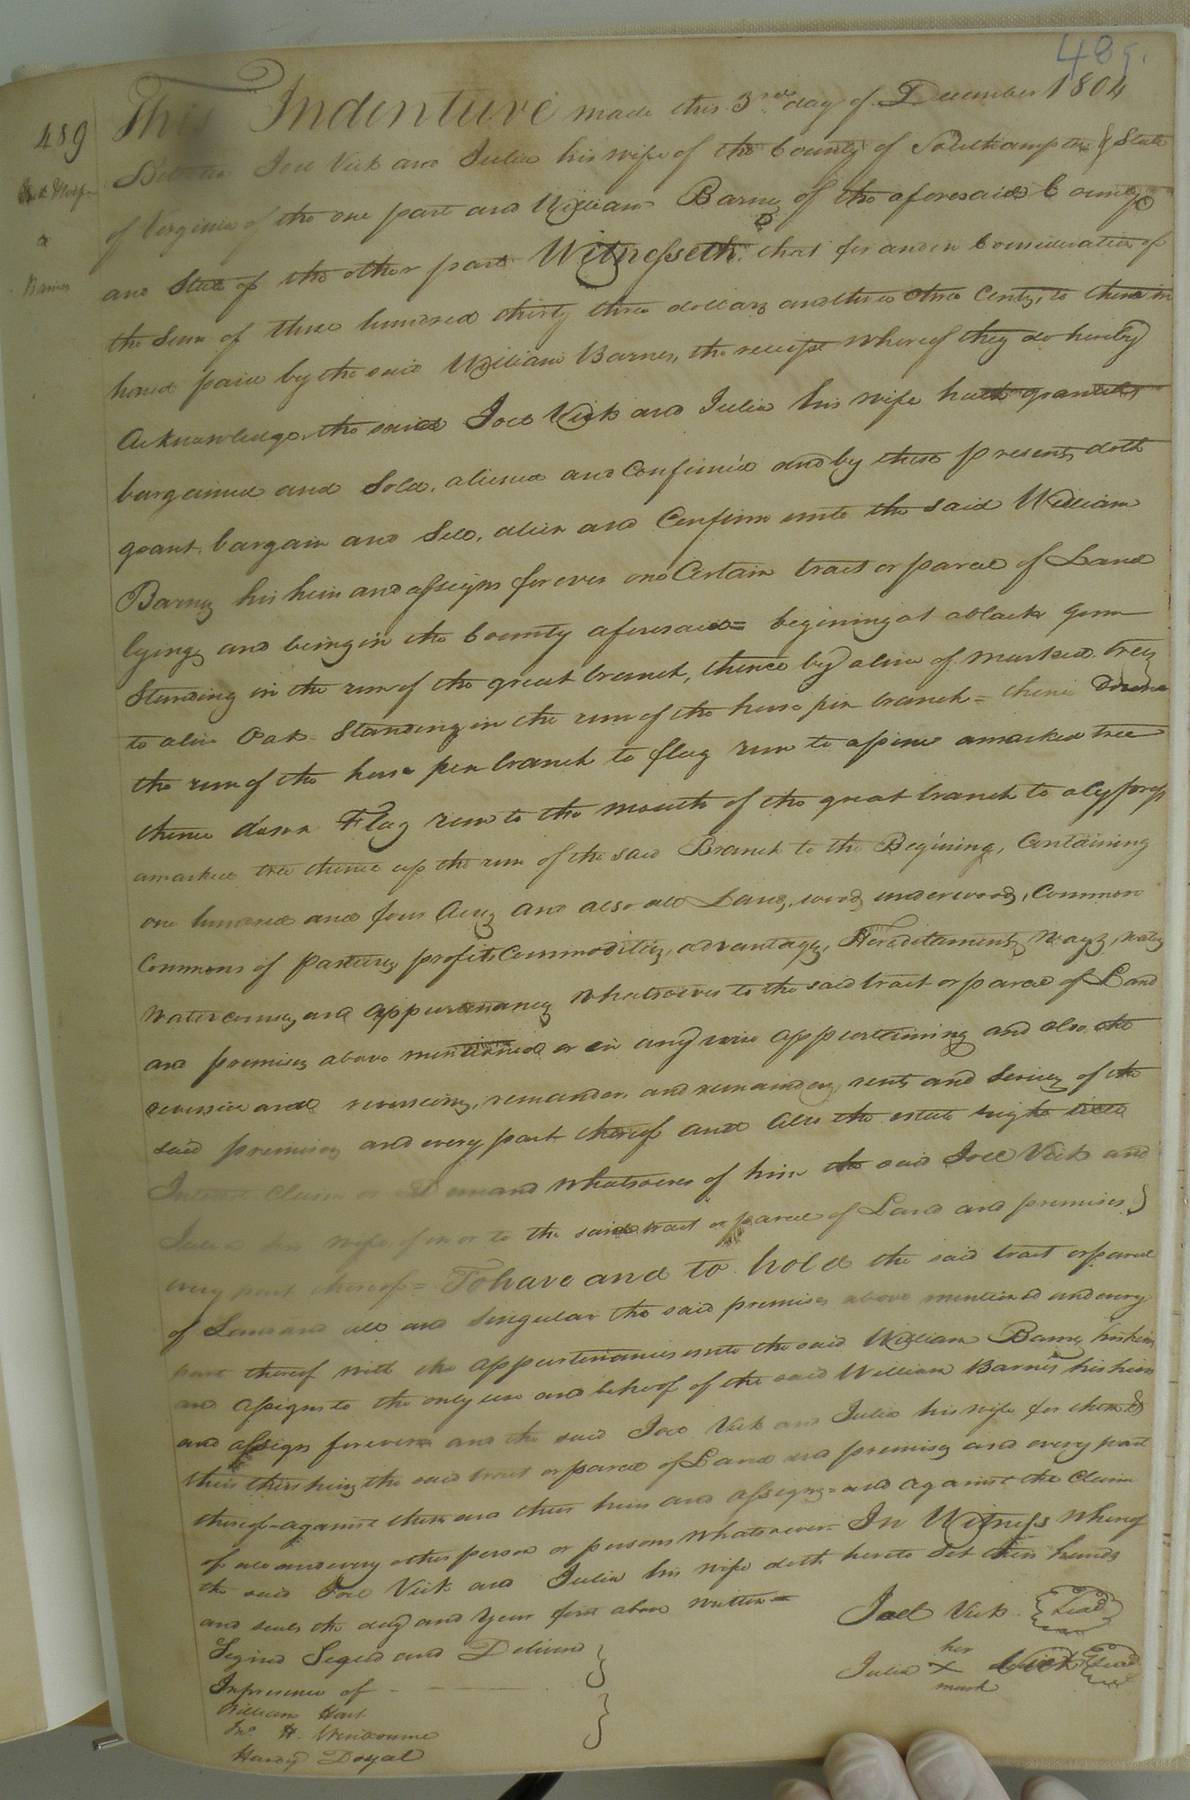 489.
489
Vick & Wife
to
Barnes
This Indenture made this 3rd day of December 1804
Between Joel Vick and Julia his wife of the County of Southampton & State
of Virginia of the one part and William Barnes of the aforesaid County
and State of the other part Witnesseth that for and in Consideration of
the Sum of three hundred thirty three dollars and three three Cents, to them in
hand paid by the said William Barnes, the receipt whereof they do hereby
Acknowledge, the said Joel Vick and Julia his wife hath granted
bargained and Sold, aliened and Confirmed and by these presents doth
grant, bargain and Sell, alien and Confirm unto the said William
Barnes his heirs and assigns for ever one Certain tract or parcel of Land
lying and being in the County aforesaid = begining at a black gum
Standing in the run of the great branch, thence by a line of marked trees
to a live Oak Standing in the run of the horse pen branch = thence down
the run of the horse pen branch to flag run to a pine a marked tree
thence down Flag run to the mouth of the great branch to a Cypress
a marked tree thence up the run of the said Branch to the Begining, Containing
one hundred and four Acres and also all Lands, woods underwoods, Common
Commons of pastures profits Commodities, advantages, Hereditaments ways, waters
Watercourses and appurtenances whatsoever to the said tract or parcel of Land
and premises above mentioned or in any wise appertaining and also the
reversion and reversions, remainder and remainders, rents and Services of the
said premises and every part thereof and also the estate right title
Interest Claim or Demand whatsoever of him the said Joel Vick and
Julia his wife of in or to the said tract or parcel of Land and premises &
every part thereof = To have and to hold the said tract or parcel
of Land and all and singular the said premises above mentioned and every
part thereof with the appurtenances unto the said William Barnes his heirs
and assigns to the only use and behoof of the said William Barnes his heirs
and assigns forever and the said Joel Vick and Julia his wife for them &
their heirs the said tract or parcel of Land and premises and every part
thereof = against them and their heirs and assigns = and against the Claim
of all and every other person or persons whatsoever = In Witness whereof
the said Joel Vick and Julia his wife doth hereto Set their hands
and seals the day and year first above written =
Joel Vick Seal
Signed Sealed and Delivered
her
Julia X Vick Seal
mark
In presence of
William Hart
Jno. H.
Hardy Doyal